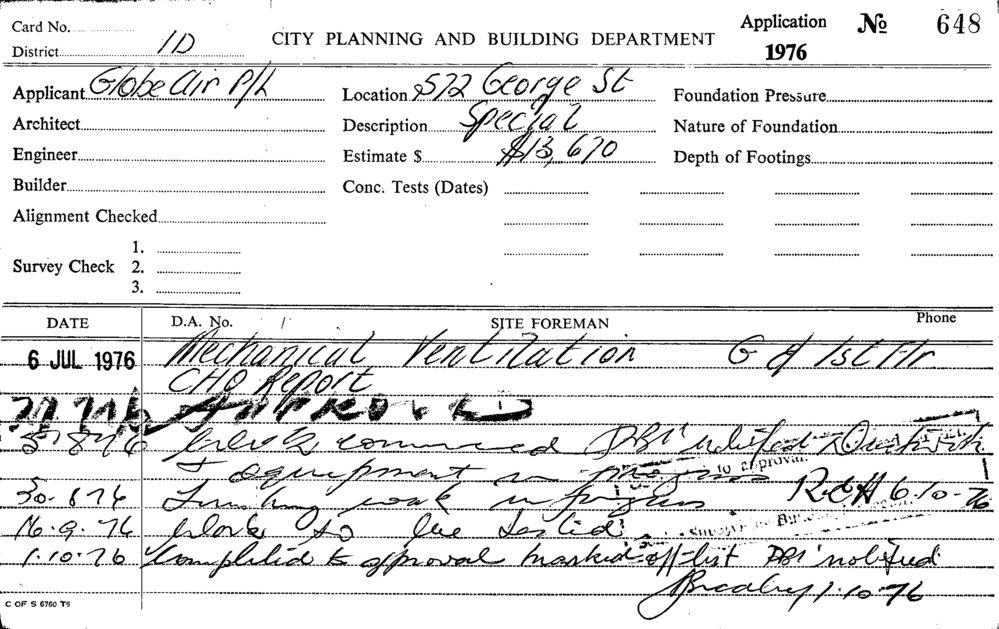 Card No.
District 1D
CITY PLANNING AND BUILDING DEPARTMENT
Application № 648
1976
Applicant Globe Air P/L
Location 572 George St
Foundation Pressure
Architect
Description Special
Nature of Foundation
Engineer
Estimate $ $13,670
Depth of Footings
Builder
Conc. Tests (Dates)
Alignment Checked
1.
Survey Check 2.
3.
DATE D.A. No. SITE FOREMAN Phone
6 JUL 1976 Mechanical Ventilation G & 1st Flr
CHO Report
APPROVED
work commenced DBI notified Ductwork
& equipment in progress to approval
30.8.76 Finishing work in progress R&H 6.10.76
16.9.76 Work to be tested
1.10.76 Completed to approval marked off list DBI notified
1.10.76
C OF S 6760 T5